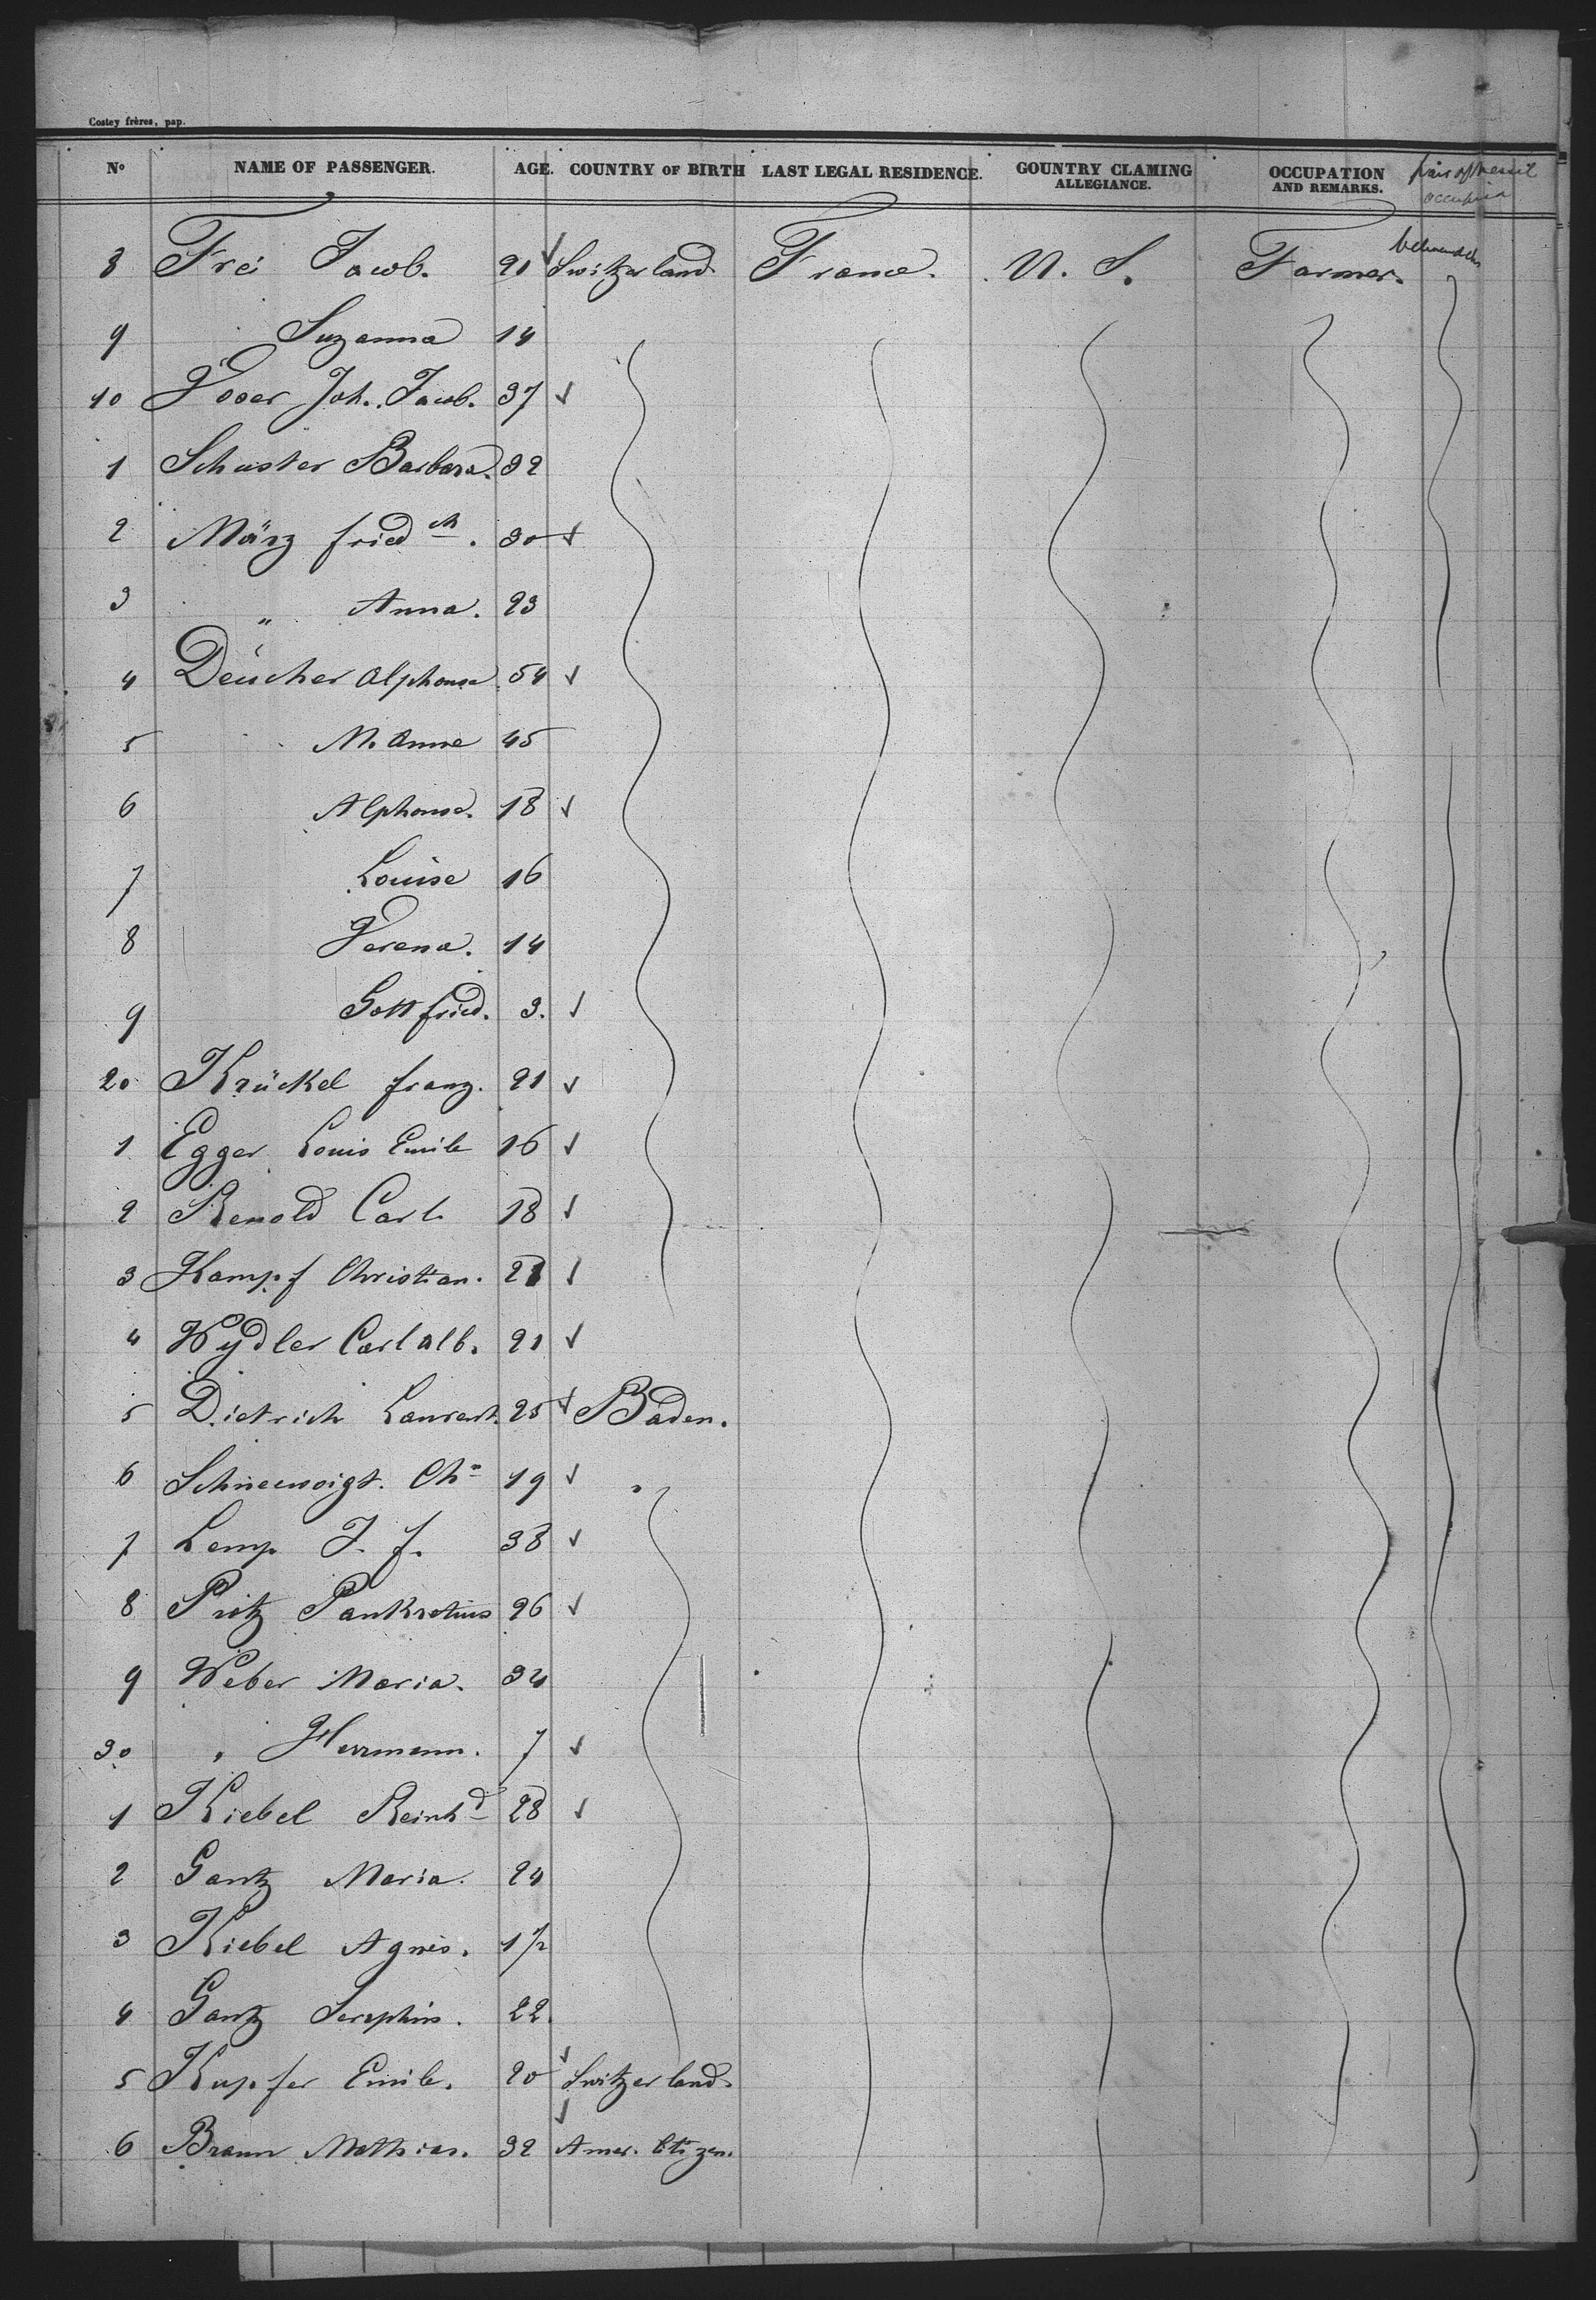 Costey frères, pap.
No NAME OF PASSENGER. AGE. COUNTRY OF BIRTH LAST LEGAL RESIDENCE. COUNTRY CLAMING ALLEGIANCE. OCCUPATION AND REMARKS.
8 Frei Jacob. 21 Switzerland France. U. S. Farmer.
9 Suzanna 14
10 Joh. Jacob. 37
1 Schuster Barbara. 32
2 März friedch. 30
3 " Anna. 23
4 Deücher Alphonse 54
5 M. Anne 45
6 Alphonse. 18
7 Louise 16
8 Verena. 14
9 Gottfried. 3.
20 Krückel franz. 21
1 Egger Louis Emile 16
2 Renold Carl 18
3 Kampf Christian. 21
4 Wydler Carl Alb. 21
5 Dietrich 25 Baden.
6 Schneevoigt. Chs 19 "
7 Lemp J. f. 38
8 Pankratius 26
9 Weber Maria. 34
30 " Herrmann. 7
1 Kiebel Reinhd 28
2 Gantz Maria. 24
3 Kiebel Agnes. 1/2
4 Gantz Seraphin. 22.
5 Kupfer Emile. 20 Switzerland.
6 Braun Mathias. 32 Amer. Citizen.